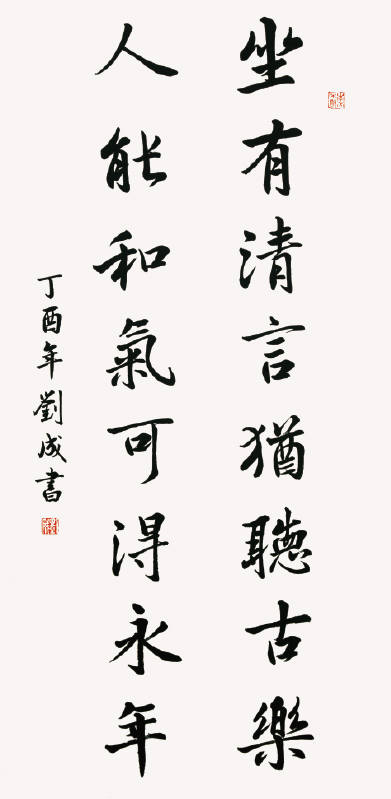 坐有清言猶聽古樂
人能和氣可得永年
丁酉年劉成書